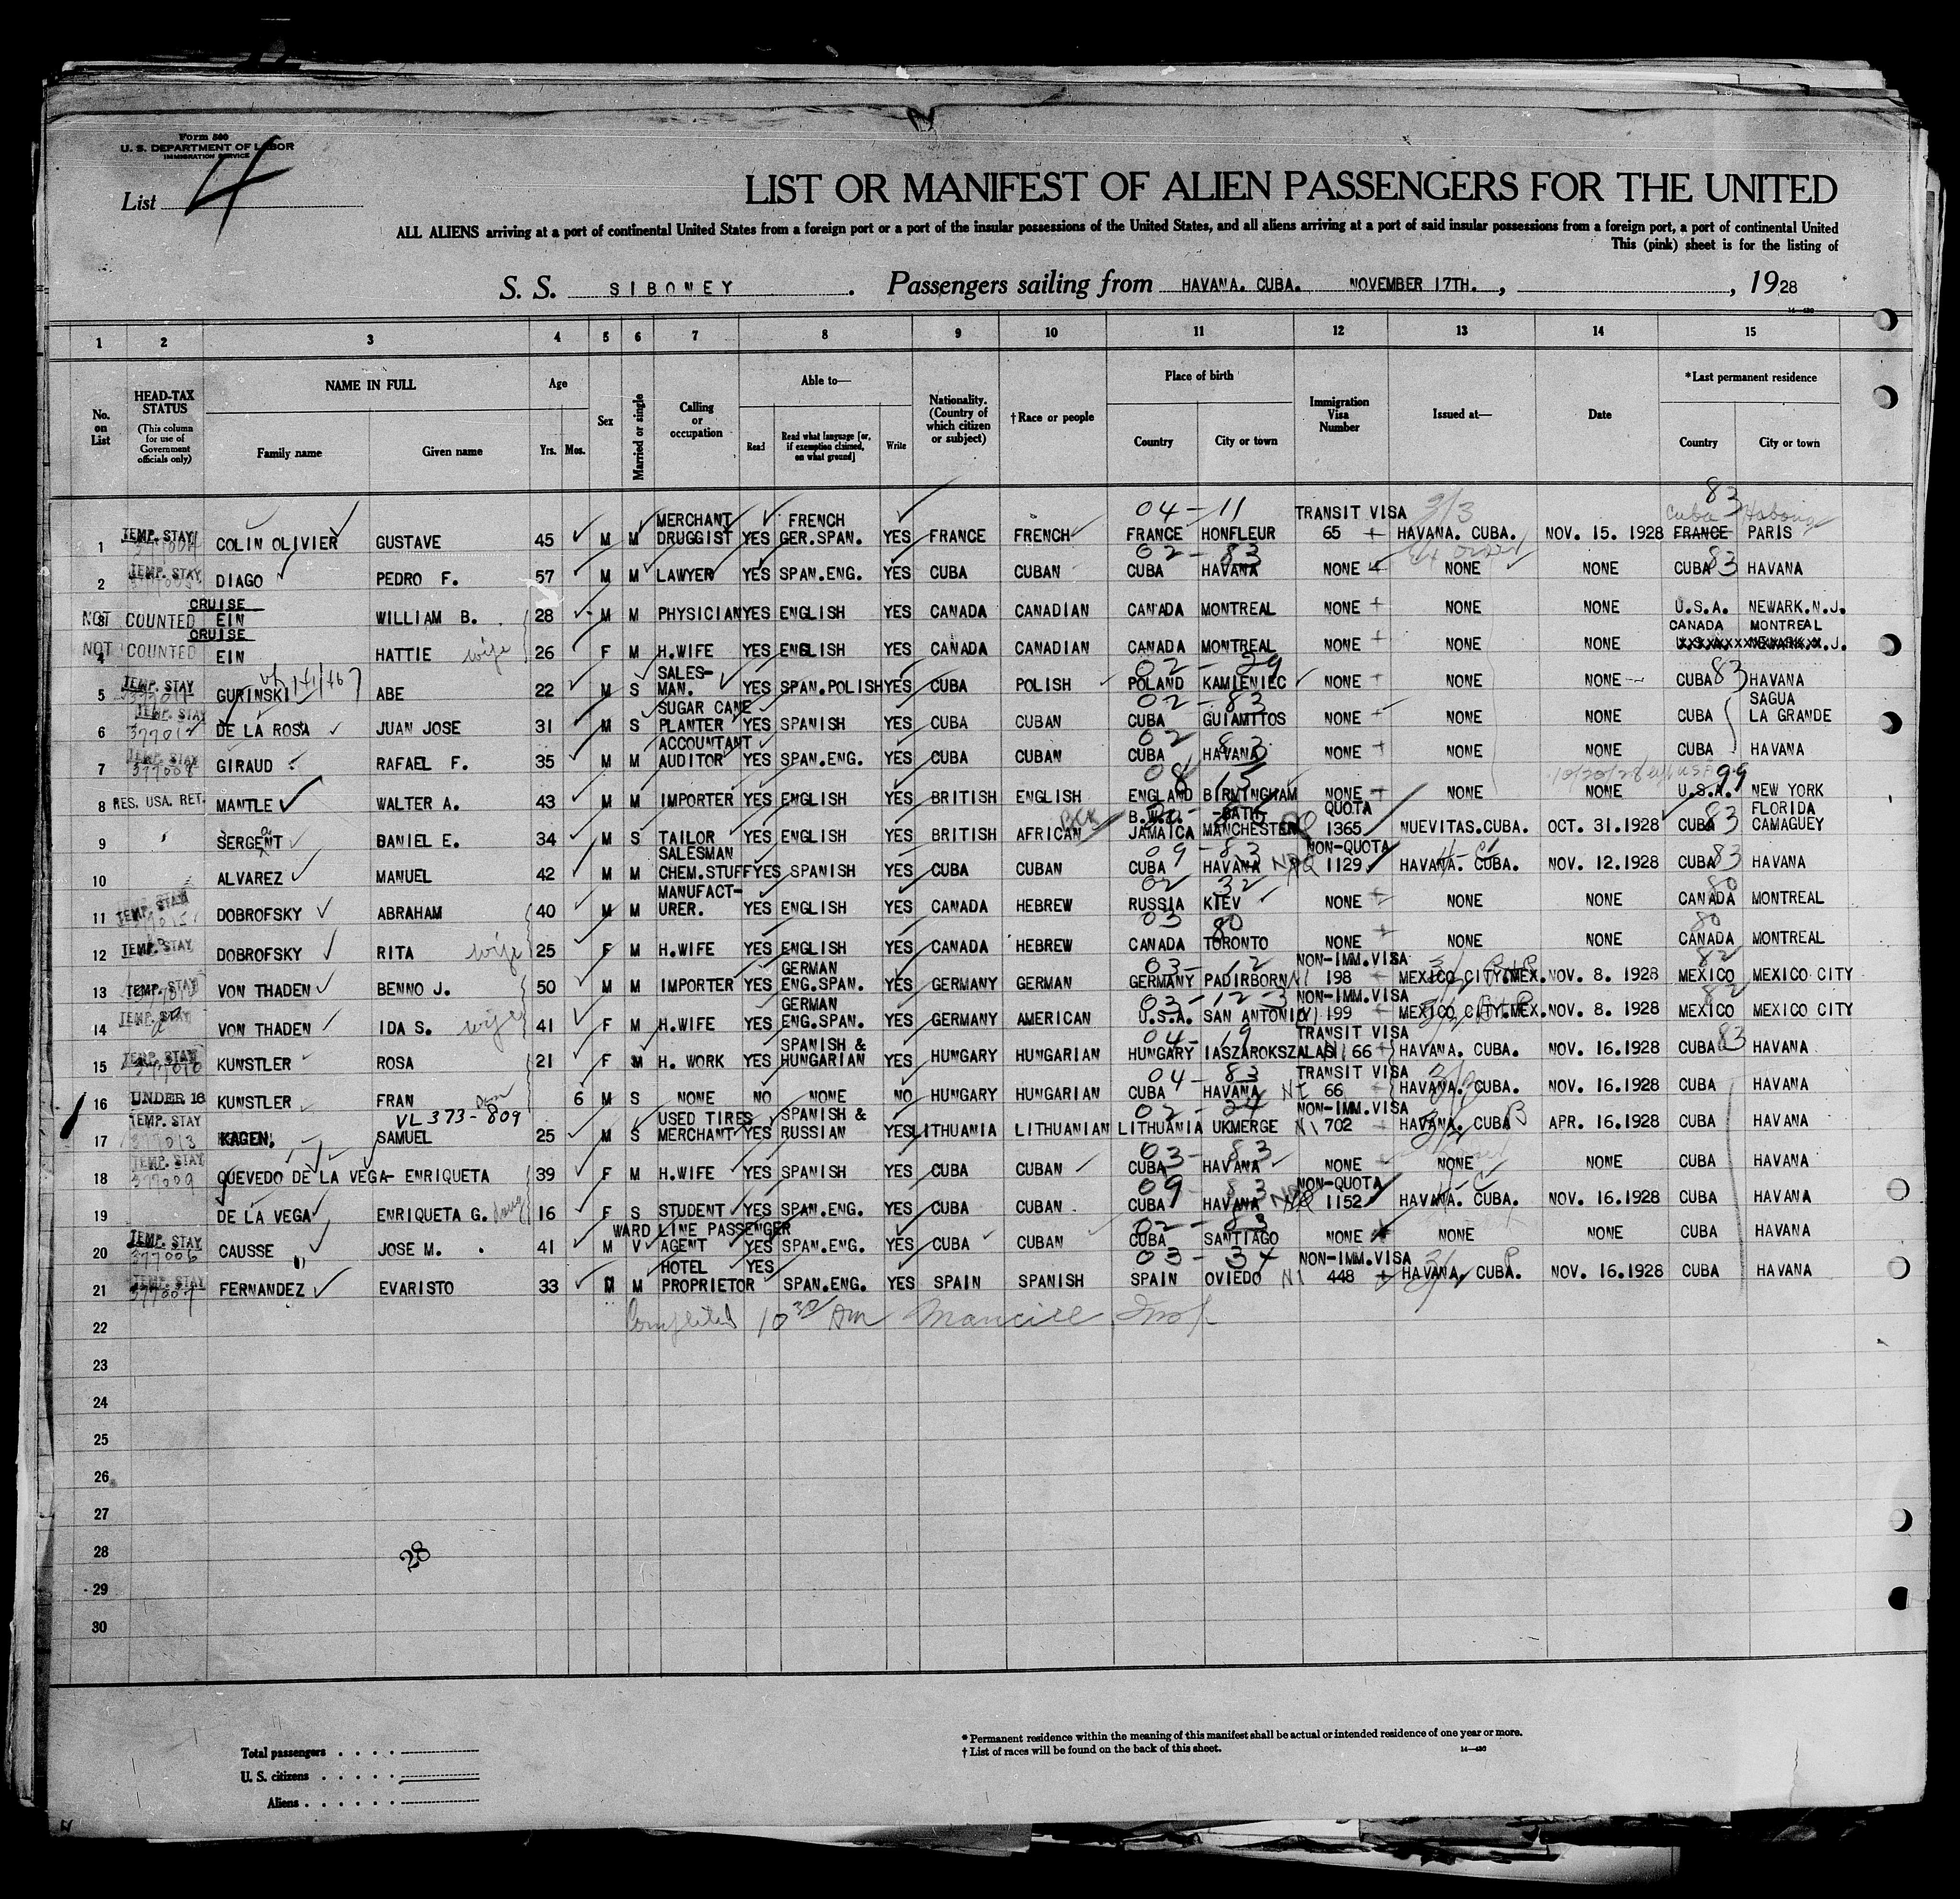 Form 500
U. S. DEPARTMENT OF LABOR
IMMIGRATION SERVICE
List 4
LIST OR MANIFEST OF ALIEN PASSENGERS FOR THE UNITED
ALL ALIENS arriving at a port of continental United States from a foreign port or a port of the insular possessions of the United States, and all aliens arriving at a port of said insular possessions from a foreign port, a port of continental United
This (pink) sheet is for the listing of
S. S. SIBONEY. Passengers sailing from HAVANA. CUBA. NOVEMBER 17TH., , 1928
1 2 3 4 5 6 7 8 9 10 11 12 13 14 15
No. on List
HEAD-TAX STATUS (This column for use of Government officials only)
NAME IN FULL
Family name Given name
Age
Yrs. Mos.
Sex
Married or single
Calling or occupation
Able to—
Read
Read what language [or, if exemption claimed, on what ground]
Write
Nationality. (Country of which citizen or subject)
† Race or people
Place of birth
Country City or town
Immigration Visa Number
Issued at—
Date
*Last permanent residence
Country City or town
04 - 11 83
MERCHANT FRENCH TRANSIT VISA 3/3 Cuba Habana
1 TEMP. STAY COLIN OLIVIER GUSTAVE 45 M M DRUGGIST YES GER.SPAN. YES FRANCE FRENCH FRANCE HONFLEUR 65 HAVANA. CUBA. NOV. 15. 1928 FRANCE PARIS
02 - 83
2 TEMP. STAY DIAGO PEDRO F. 57 M M LAWYER YES SPAN.ENG. YES CUBA CUBAN CUBA HAVANA NONE NONE NONE CUBA 83 HAVANA
CRUISE
NOT 3 COUNTED EIN WILLIAM B. 28 M M PHYSICIAN YES ENGLISH YES CANADA CANADIAN CANADA MONTREAL NONE NONE NONE U.S.A. NEWARK.N.J.
CRUISE CANADA MONTREAL
NOT 4 COUNTED EIN HATTIE wife 26 F M H.WIFE YES ENGLISH YES CANADA CANADIAN CANADA MONTREAL NONE NONE NONE
SALES- 02 - 29
5 TEMP. STAY GURINSKI ABE 22 M S MAN. YES SPAN.POLISH YES CUBA POLISH POLAND KAMIENIEC NONE NONE NONE CUBA 83 HAVANA
SUGAR CANE 02 - 83 SAGUA
6 TEMP. STAY 377012 DE LA ROSA JUAN JOSE 31 M S PLANTER YES SPANISH YES CUBA CUBAN CUBA GUIAMITOS NONE NONE NONE CUBA LA GRANDE
ACCOUNTANT 02 83
7 TEMP. STAY 377008 GIRAUD RAFAEL F. 35 M M AUDITOR YES SPAN.ENG. YES CUBA CUBAN CUBA HAVANA NONE NONE NONE CUBA HAVANA
08 15 99
8 RES. USA. RET. MANTLE WALTER A. 43 M M IMPORTER YES ENGLISH YES BRITISH ENGLISH ENGLAND BIRMINGHAM NONE NONE NONE U.S.A. NEW YORK
BLK B.W.I. QUOTA FLORIDA
9 SERGENT DANIEL E. 34 M S TAILOR YES ENGLISH YES BRITISH AFRICAN JAMAICA MANCHESTER 1365 NUEVITAS.CUBA. OCT. 31.1928 CUBA 83 CAMAGUEY
SALESMAN 09 - 83 NON-QUOTA
10 ALVAREZ MANUEL 42 M M CHEM.STUFF YES SPANISH YES CUBA CUBAN CUBA HAVANA NPQ 1129 HAVANA. CUBA. NOV. 12.1928 CUBA 83 HAVANA
MANUFACT- 02 32 80
11 TEMP. STAY DOBROFSKY ABRAHAM 40 M M URER. YES ENGLISH YES CANADA HEBREW RUSSIA KIEV NONE NONE NONE CANADA MONTREAL
03 80 80
12 TEMP. STAY DOBROFSKY RITA wife 25 F M H.WIFE YES ENGLISH YES CANADA HEBREW CANADA TORONTO NONE NONE NONE CANADA MONTREAL
GERMAN 03 - 12 NON-IMM.VISA 82
13 TEMP. STAY VON THADEN BENNO J. 50 M M IMPORTER YES ENG.SPAN. YES GERMANY GERMAN GERMANY PADIRBORN 198 MEXICO CITY.MEX. NOV. 8. 1928 MEXICO MEXICO CITY
GERMAN 03 - 12 - 3 NON-IMM.VISA 82
14 TEMP. STAY VON THADEN IDA S. wife 41 F M H.WIFE YES ENG.SPAN. YES GERMANY AMERICAN U.S.A. SAN ANTONIO 199 MEXICO CITY.MEX. NOV. 8. 1928 MEXICO MEXICO CITY
SPANISH & 04 - 19 TRANSIT VISA
15 TEMP. STAY 377010 KUNSTLER ROSA 21 F M H. WORK YES HUNGARIAN YES HUNGARY HUNGARIAN HUNGARY IASZAROKSZALAS 66 HAVANA. CUBA. NOV. 16.1928 CUBA 83 HAVANA
04 - 83 TRANSIT VISA
16 UNDER 16 KUNSTLER FRAN 6 M S NONE NO NONE NO HUNGARY HUNGARIAN CUBA HAVANA 66 HAVANA. CUBA. NOV. 16.1928 CUBA HAVANA
VL 373-809 USED TIRES SPANISH & 02 - 24 NON-IMM.VISA
17 TEMP. STAY 377013 KAGEN, SAMUEL 25 M S MERCHANT YES RUSSIAN YES LITHUANIA LITHUANIAN LITHUANIA UKMERGE 702 HAVANA. CUBA APR. 16.1928 CUBA HAVANA
03 - 83
18 TEMP. STAY 377009 QUEVEDO DE LA VEGA- ENRIQUETA 39 F M H.WIFE YES SPANISH YES CUBA CUBAN CUBA HAVANA NONE NONE NONE CUBA HAVANA
09 83 NON-QUOTA
19 DE LA VEGA ENRIQUETA G. 16 F S STUDENT YES SPAN.ENG. YES CUBA CUBAN CUBA HAVANA 1152 HAVANA. CUBA. NOV. 16.1928 CUBA HAVANA
WARD LINE PASSENGER 02 - 83
20 TEMP. STAY 377006 CAUSSE JOSE M. 41 M V AGENT YES SPAN.ENG. YES CUBA CUBAN CUBA SANTIAGO NONE NONE NONE CUBA HAVANA
HOTEL YES 03 - 34 NON-IMM.VISA
21 TEMP. STAY 377007 FERNANDEZ EVARISTO 33 M M PROPRIETOR SPAN.ENG. YES SPAIN SPANISH SPAIN OVIEDO 448 HAVANA. CUBA. NOV. 16.1928 CUBA HAVANA
22 Completed 10 30 AM
23
24
25
26
27
28 28
29
30
Total passengers
U. S. citizens
Aliens
* Permanent residence within the meaning of this manifest shall be actual or intended residence of one year or more.
† List of races will be found on the back of this sheet.
14—430